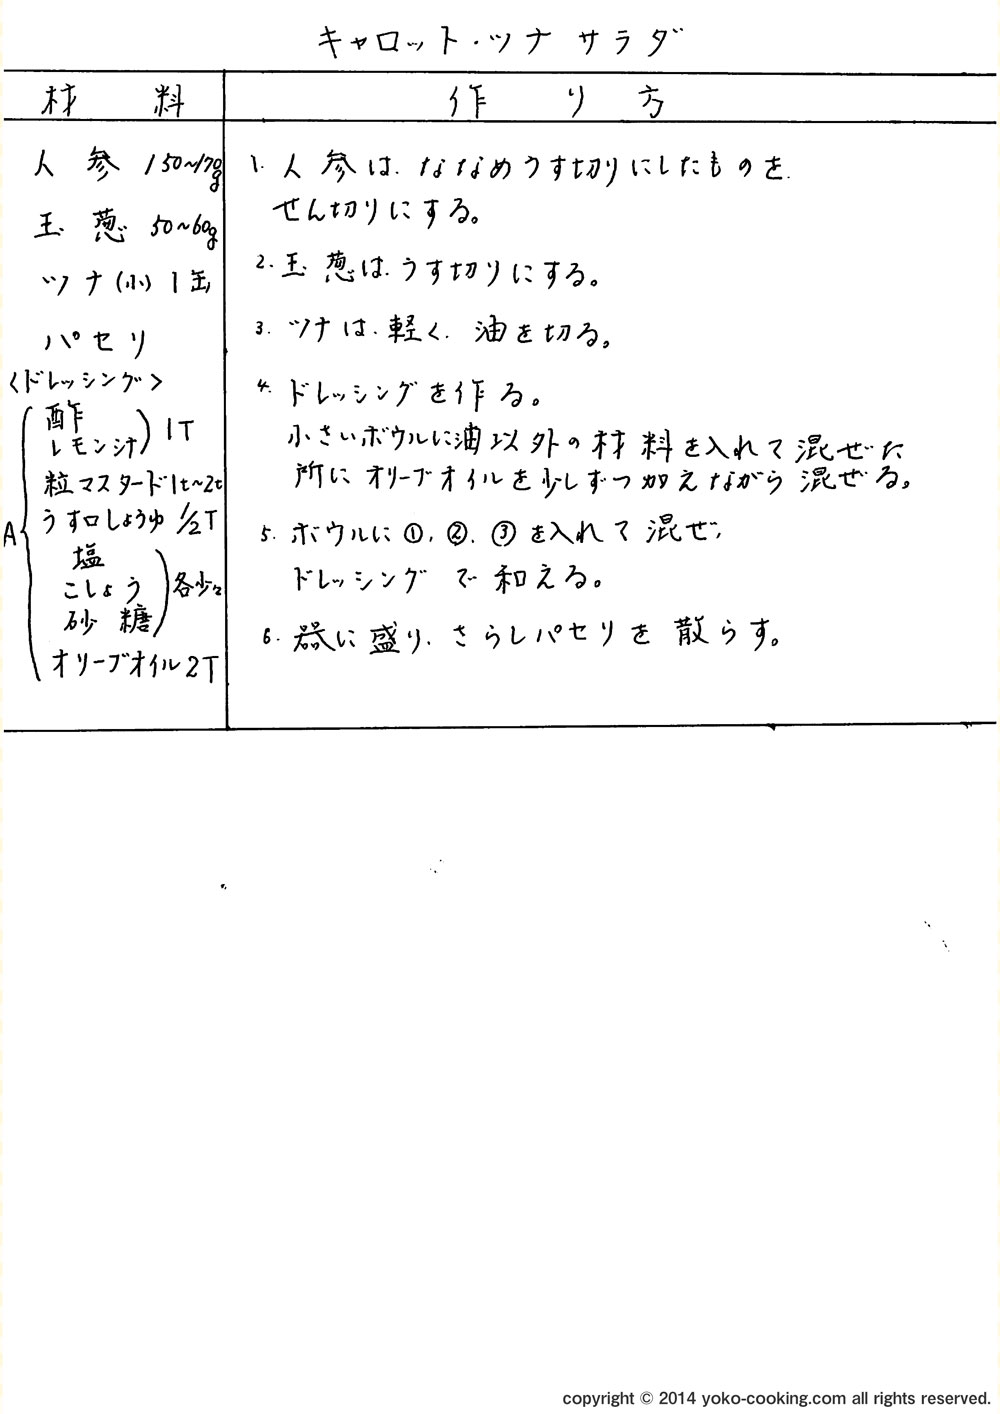 キャロット・ツナサラダ
材料
作り方
人参 150~170g
玉葱 50~60g
ツナ(小)1缶
パセリ
<ドレッシング>
A
酢
レモン汁
1T
粒マスタード1t~2t
うす口しょうゆ 1/2T
塩
こしょう
砂糖
各少々
オリーブオイル2T
1. 人参は、ななめうす切りにしたものを、
せん切りにする。
2. 玉葱は、うす切りにする。
3. ツナは、軽く、油を切る。
4. ドレッシングを作る。
小さいボウルに油以外の材料を入れて混ぜた
所にオリーブオイルを少しずつ加えながら混ぜる。
5. ボウルに①,②,③を入れて混ぜ,
ドレッシングで和える。
6. 器に盛り、さらしパセリを散らす。
copyright © 2014 yoko-cooking.com all rights reserved.